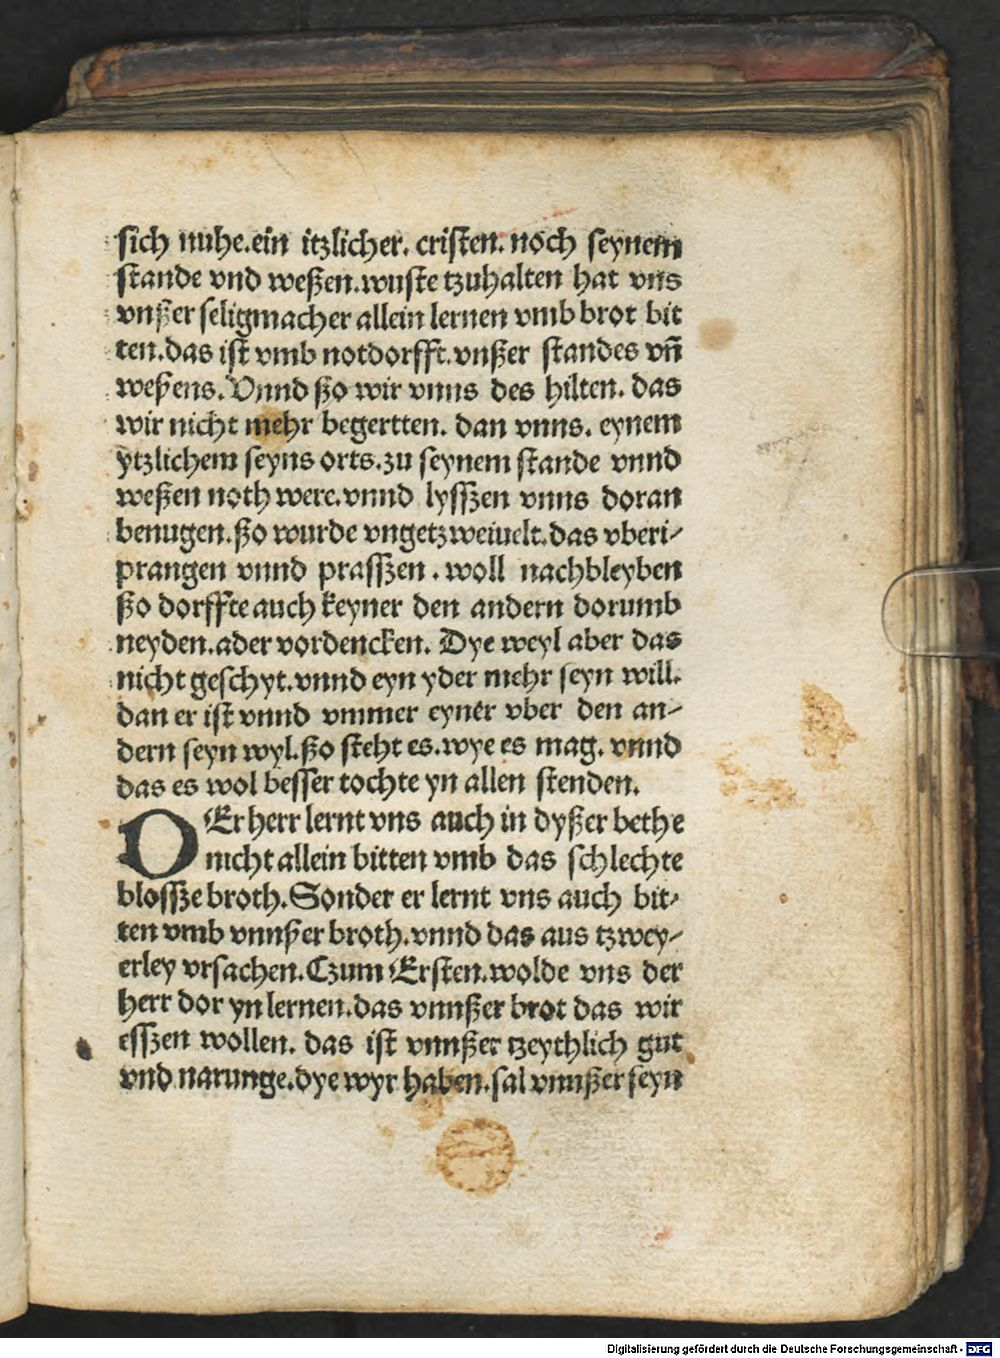 sich nuhe.ein itzlicher. cristen. noch seynem
stande vnd weßen.wuste tzuhalten hat vns
vnßer seligmacher allein lernen vmb brot bit
ten.das ist vmb notdorfft.vnßer standes vn̄
weßens. Vnnd ßo wir vnns des hilten. das
wir nicht mehr begertten. dan vnns. eynem
ytzlichem seyns orts.zu seynem stande vnnd
weßen noth were.vnnd lyssßen vnns doran
benugen.ßo wurde vngetzweiuelt.das vberi-
prangen vnnd prassßen. woll nachbleyben
ßo dorffte auch keyner den andern dorumb
neyden.ader vordencken. Dye weyl aber das
nicht geschyt.vnnd eyn yder mehr seyn will.
dan er ist vnnd vmmer eyner vber den an-
dern seyn wyl.ßo steht es.wye es mag. vnnd
das es wol besser tochte yn allen stenden.
DEr herr lernt vns auch in dyßer bethe
nicht allein bitten vmb das schlechte
blossße broth. Sonder er lernt vns auch bit-
ten vmb vnnßer broth.vnnd das aus tzwey-
erley vrsachen. Czum Ersten.wolde vns der
herr dor yn lernen.das vnnßer brot das wir
essßen wollen. das ist vnnßer tzeythlich gut
vnd narunge.dye wyr haben.sal vnnßer seyn
Digitalisierung gefördert durch die Deutsche Forschungsgemeinschaft - DFG